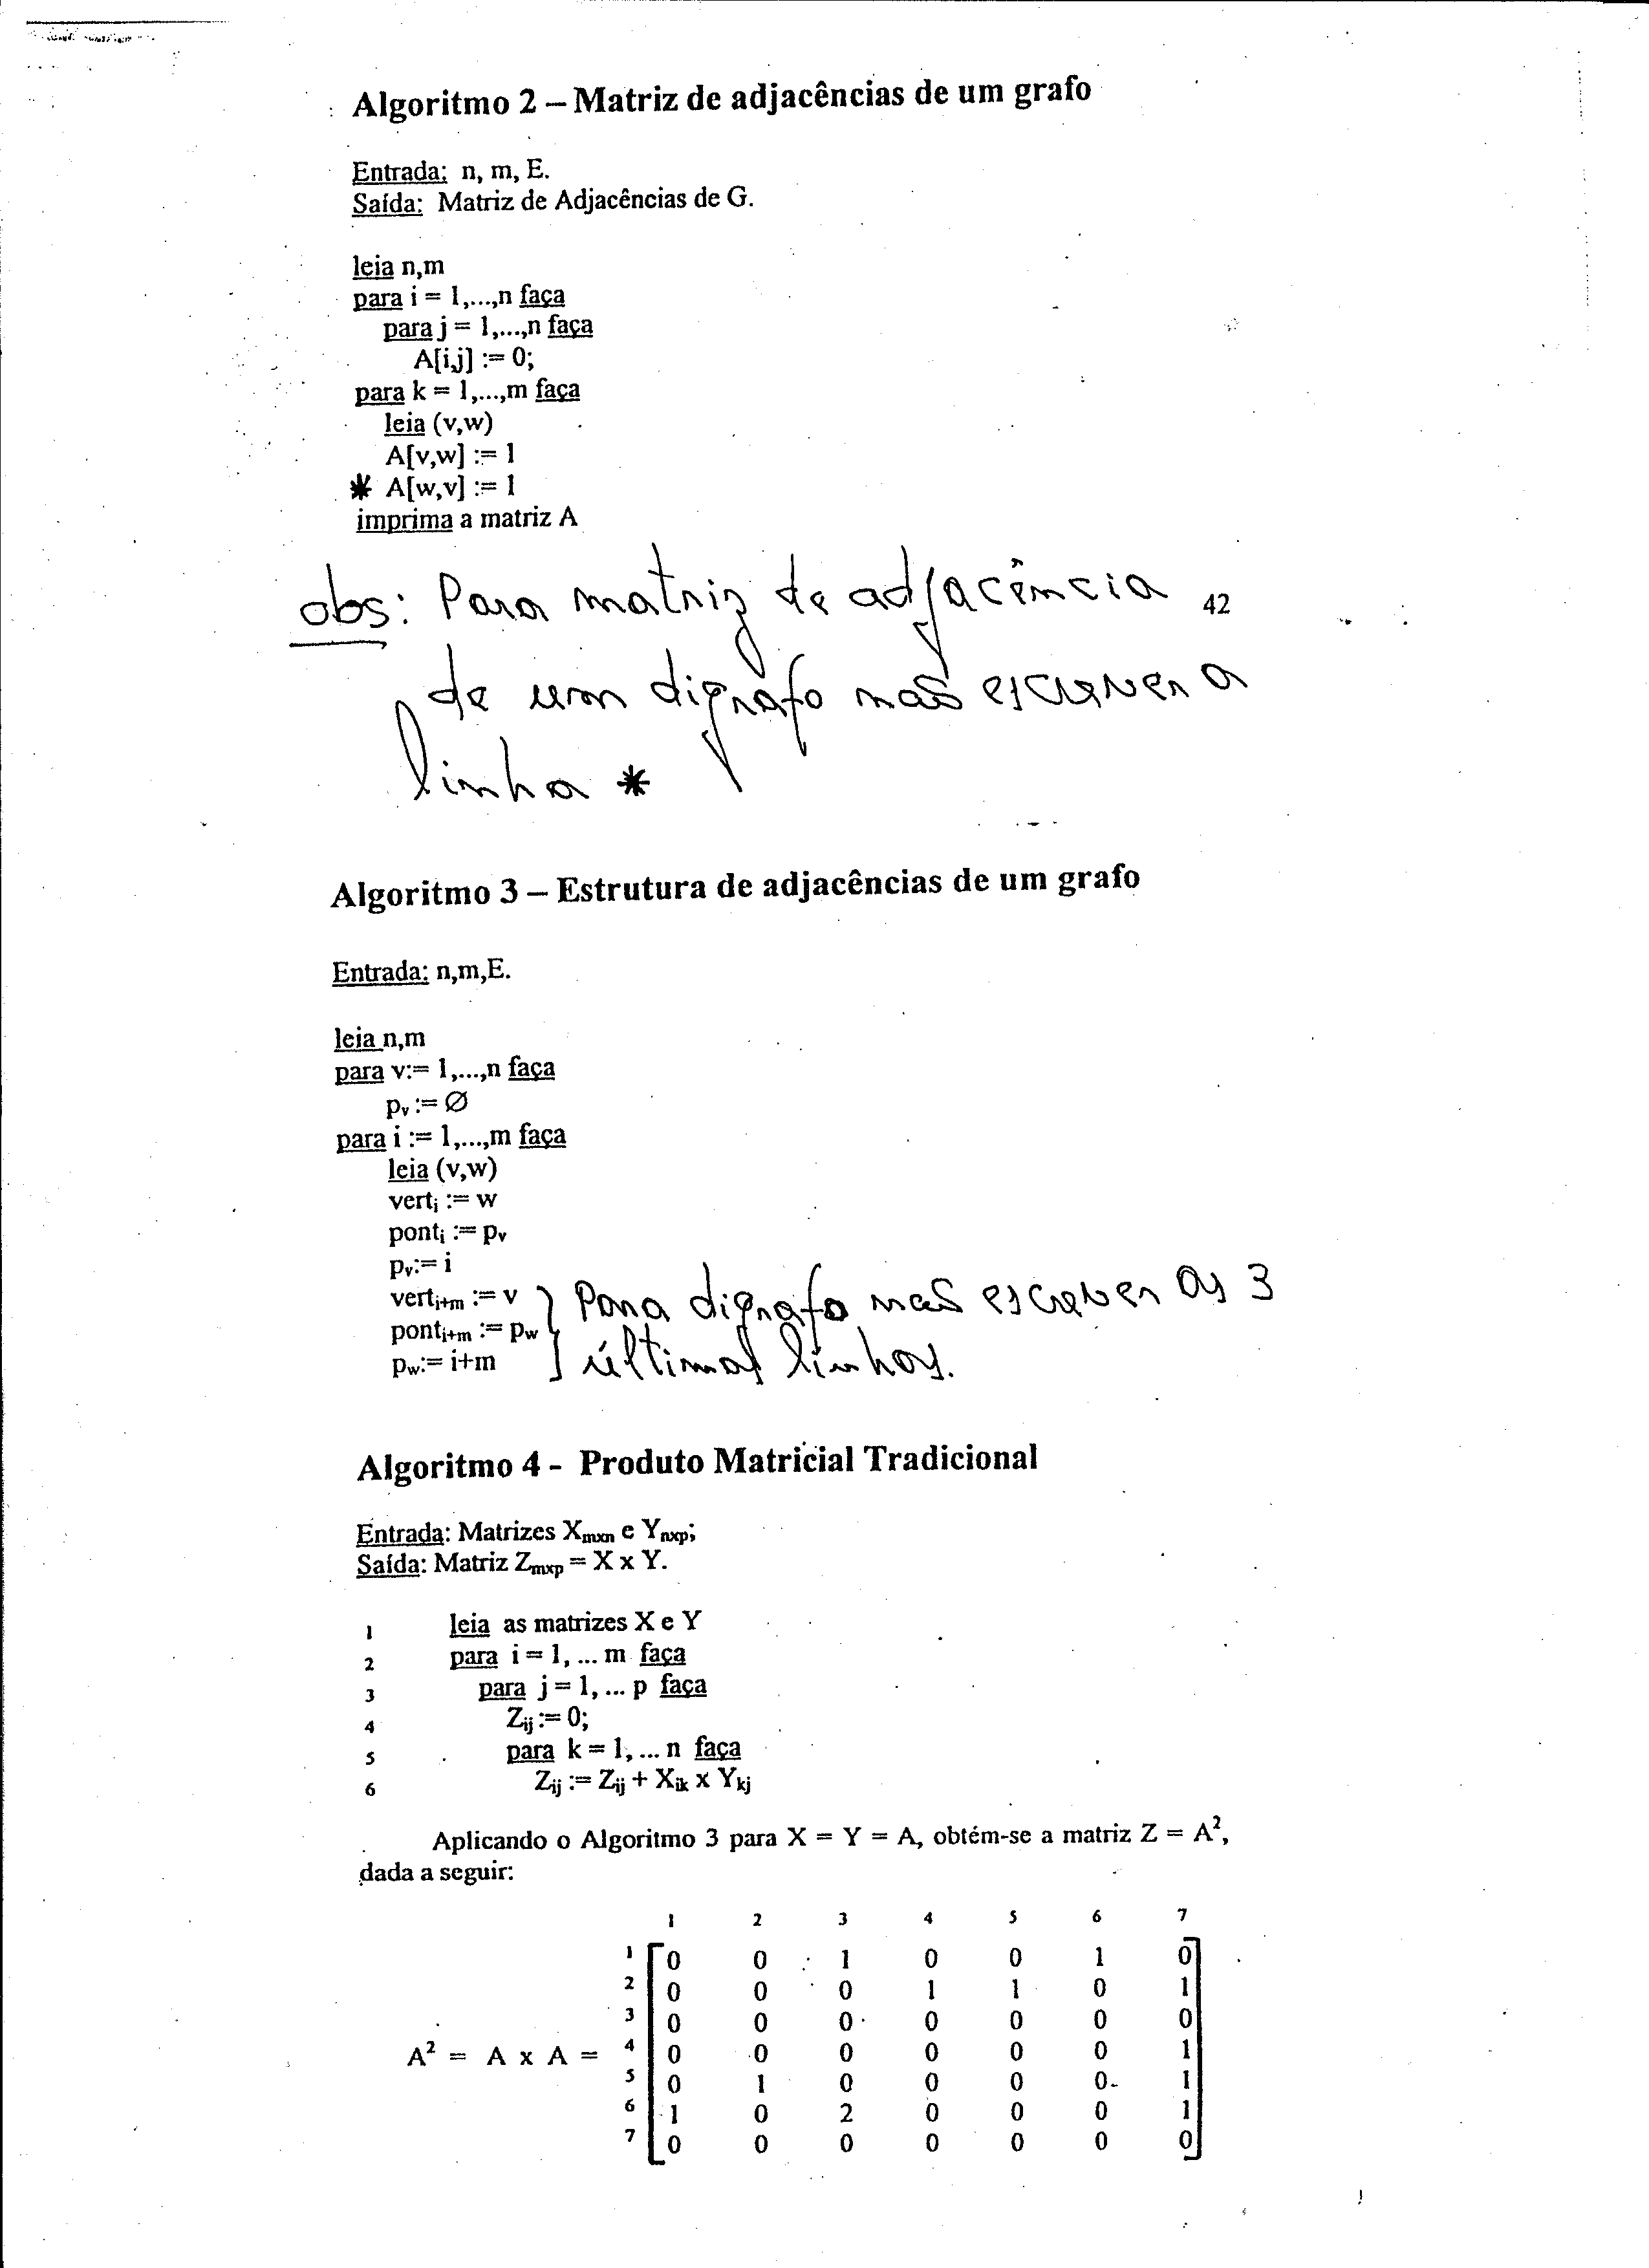 Algoritmo 2 – Matriz de adjacências de um grafo
Entrada: n, m, E.
Saída: Matriz de Adjacências de G.
leia n,m
para i = 1,...,n faça
para j = 1,...,n faça
A[i,j] := 0;
para k = 1,...,m faça
leia (v,w)
A[v,w] := 1
* A[w,v] := 1
imprima a matriz A
obs: Para matriz de adjacência
42
de um digrafo não escrever a
linha *
Algoritmo 3 – Estrutura de adjacências de um grafo
Entrada: n,m,E.
leia n,m
para v:= 1,...,n faça
pv := ∅
para i := 1,...,m faça
leia (v,w)
verti := w
ponti := pv
pv:= i
verti+m := v
ponti+m := pw
pw:= i+m
Para digrafo não escrever as 3
últimas linhas.
Algoritmo 4 - Produto Matricial Tradicional
Entrada: Matrizes Xmxn e Ynxp;
Saída: Matriz Zmxp = X x Y.
1 leia as matrizes X e Y
2 para i = 1, ... m faça
3 para j = 1, ... p faça
4 Zij := 0;
5 para k = 1, ... n faça
6 Zij := Zij + Xik x Ykj
Aplicando o Algoritmo 3 para X = Y = A, obtém-se a matriz Z = A²,
dada a seguir:
1 2 3 4 5 6 7
1 0 0 1 0 0 1 0
2 0 0 0 1 1 0 1
3 0 0 0 0 0 0 0
A² = A x A =
4 0 0 0 0 0 0 1
5 0 1 0 0 0 0 1
6 1 0 2 0 0 0 1
7 0 0 0 0 0 0 0